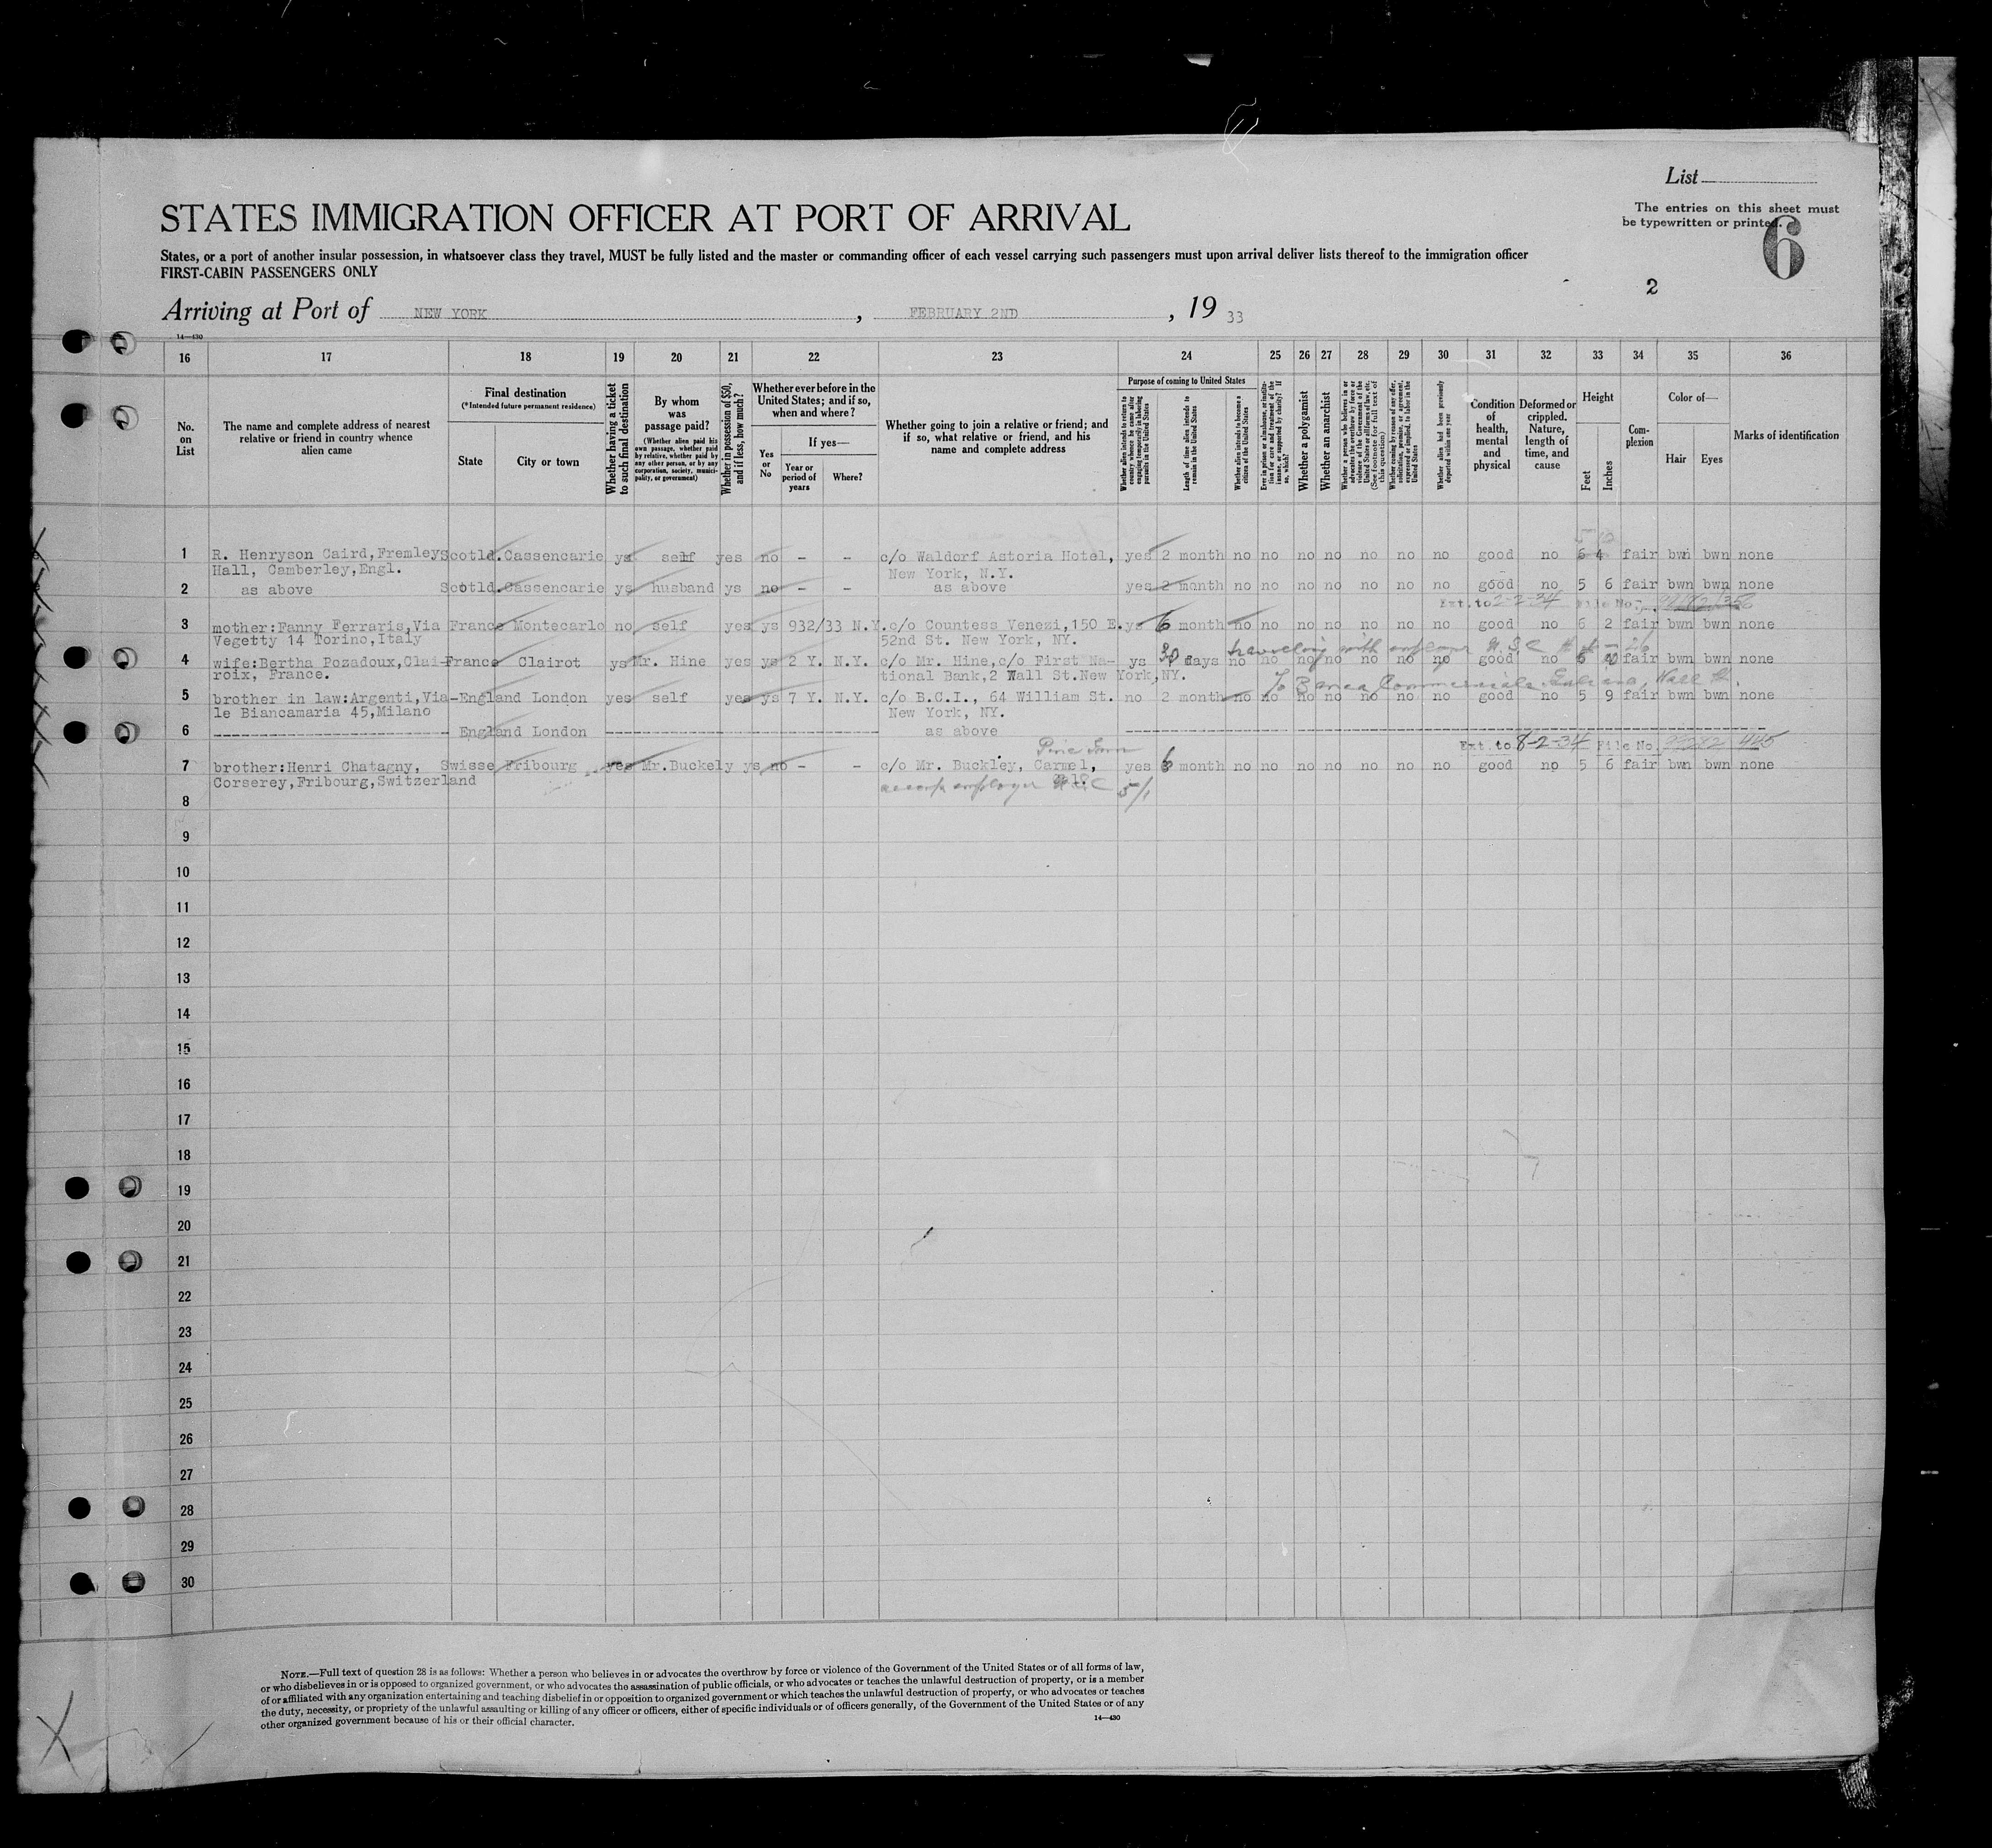 List
The entries on this sheet must
be typewritten or printed.
6
2
STATES IMMIGRATION OFFICER AT PORT OF ARRIVAL
States, or a port of another insular possession, in whatsoever class they travel, MUST be fully listed and the master or commanding officer of each vessel carrying such passengers must upon arrival deliver lists thereof to the immigration officer
FIRST-CABIN PASSENGERS ONLY
Arriving at Port of NEW YORK , FEBRUARY 2ND , 19 33
14—430
16 17 18 19 20 21 22 23 24 25 26 27 28 29 30 31 32 33 34 35 36
No. on List
The name and complete address of nearest relative or friend in country whence alien came
Final destination
(*Intended future permanent residence)
State
City or town
Whether having a ticket to such final destination
By whom was passage paid?
(Whether alien paid his own passage, whether paid by relative, whether paid by any other person, or by any corporation, society, municipality, or government)
Whether in possession of $50, and if less, how much?
Whether ever before in the United States; and if so, when and where?
Yes or No
If yes—
Year or period of years
Where?
Whether going to join a relative or friend; and if so, what relative or friend, and his name and complete address
Purpose of coming to United States
Whether alien intends to return to country whence he came after engaging temporarily in laboring pursuits in the United States
Length of time alien intends to remain in the United States
Whether alien intends to become a citizen of the United States
Ever in prison or almshouse, or institution for care and treatment of the insane, or supported by charity? If so, which?
Whether a polygamist
Whether an anarchist
Whether a person who believes in or advocates the overthrow by force or violence of the Government of the United States or all forms of law, etc. (See footnote for full text of this question)
Whether coming by reason of any offer, solicitation, promise, or agreement, expressed or implied, to labor in the United States
Whether alien had been previously deported within one year
Condition of health, mental and physical
Deformed or crippled. Nature, length of time, and cause
Height
Feet
Inches
Complexion
Color of—
Hair
Eyes
Marks of identification
1 R. Henryson Caird,Fremley Scotld. Cassencarie ys self yes no - - c/o Waldorf Astoria Hotel, yes 2 month no no no no no no no good no 6 4 fair bwn bwn none
Hall, Camberley,Engl. New York, N.Y.
2 as above Scotld. Cassencarie ys husband ys no - - as above yes 2 month no no no no no no no good no 5 6 fair bwn bwn none
Ext. to 2-2-34 File No.
3 mother:Fanny Ferraris,Via France Montecarlo no self yes ys 932/33 N.Y. c/o Countess Venezi,150 E. ys 6 month no no no no no no no good no 6 2 fair bwn bwn none
Vegetty 14 Torino,Italy 52nd St. New York, NY.
travelling with employer
4 wife:Bertha Pozadoux,Clai- France Clairot ys Mr. Hine yes ys 2 Y. N.Y. c/o Mr. Hine,c/o First Na- ys days no no no no no no no good no fair bwn bwn none
roix, France. tional Bank,2 Wall St.New York,NY.
To Banca Commerciale Italiana, Wall St.
5 brother in law:Argenti,Via- England London yes self yes ys 7 Y. N.Y. c/o B.C.I., 64 William St. no 2 month no no no no no no no good no 5 9 fair bwn bwn none
le Biancamaria 45,Milano New York, NY.
6 England London as above
Ext. to 8-2-34 File No. 445
7 brother:Henri Chatagny, Swisse Fribourg yes Mr.Buckely ys no - - c/o Mr. Buckley, Carmel, yes 6 month no no no no no no no good no 5 6 fair bwn bwn none
Corserey,Fribourg,Switzerland employer 5/1
8
9
10
11
12
13
14
15
16
17
18
19
20
21
22
23
24
25
26
27
28
29
30
NOTE.—Full text of question 28 is as follows: Whether a person who believes in or advocates the overthrow by force or violence of the Government of the United States or of all forms of law,
or who disbelieves in or is opposed to organized government, or who advocates the assassination of public officials, or who advocates or teaches the unlawful destruction of property, or is a member
of or affiliated with any organization entertaining and teaching disbelief in or opposition to organized government or which teaches the unlawful destruction of property, or who advocates or teaches
the duty, necessity, or propriety of the unlawful assaulting or killing of any officer or officers, either of specific individuals or of officers generally, of the Government of the United States or of any
other organized government because of his or their official character.
14—430